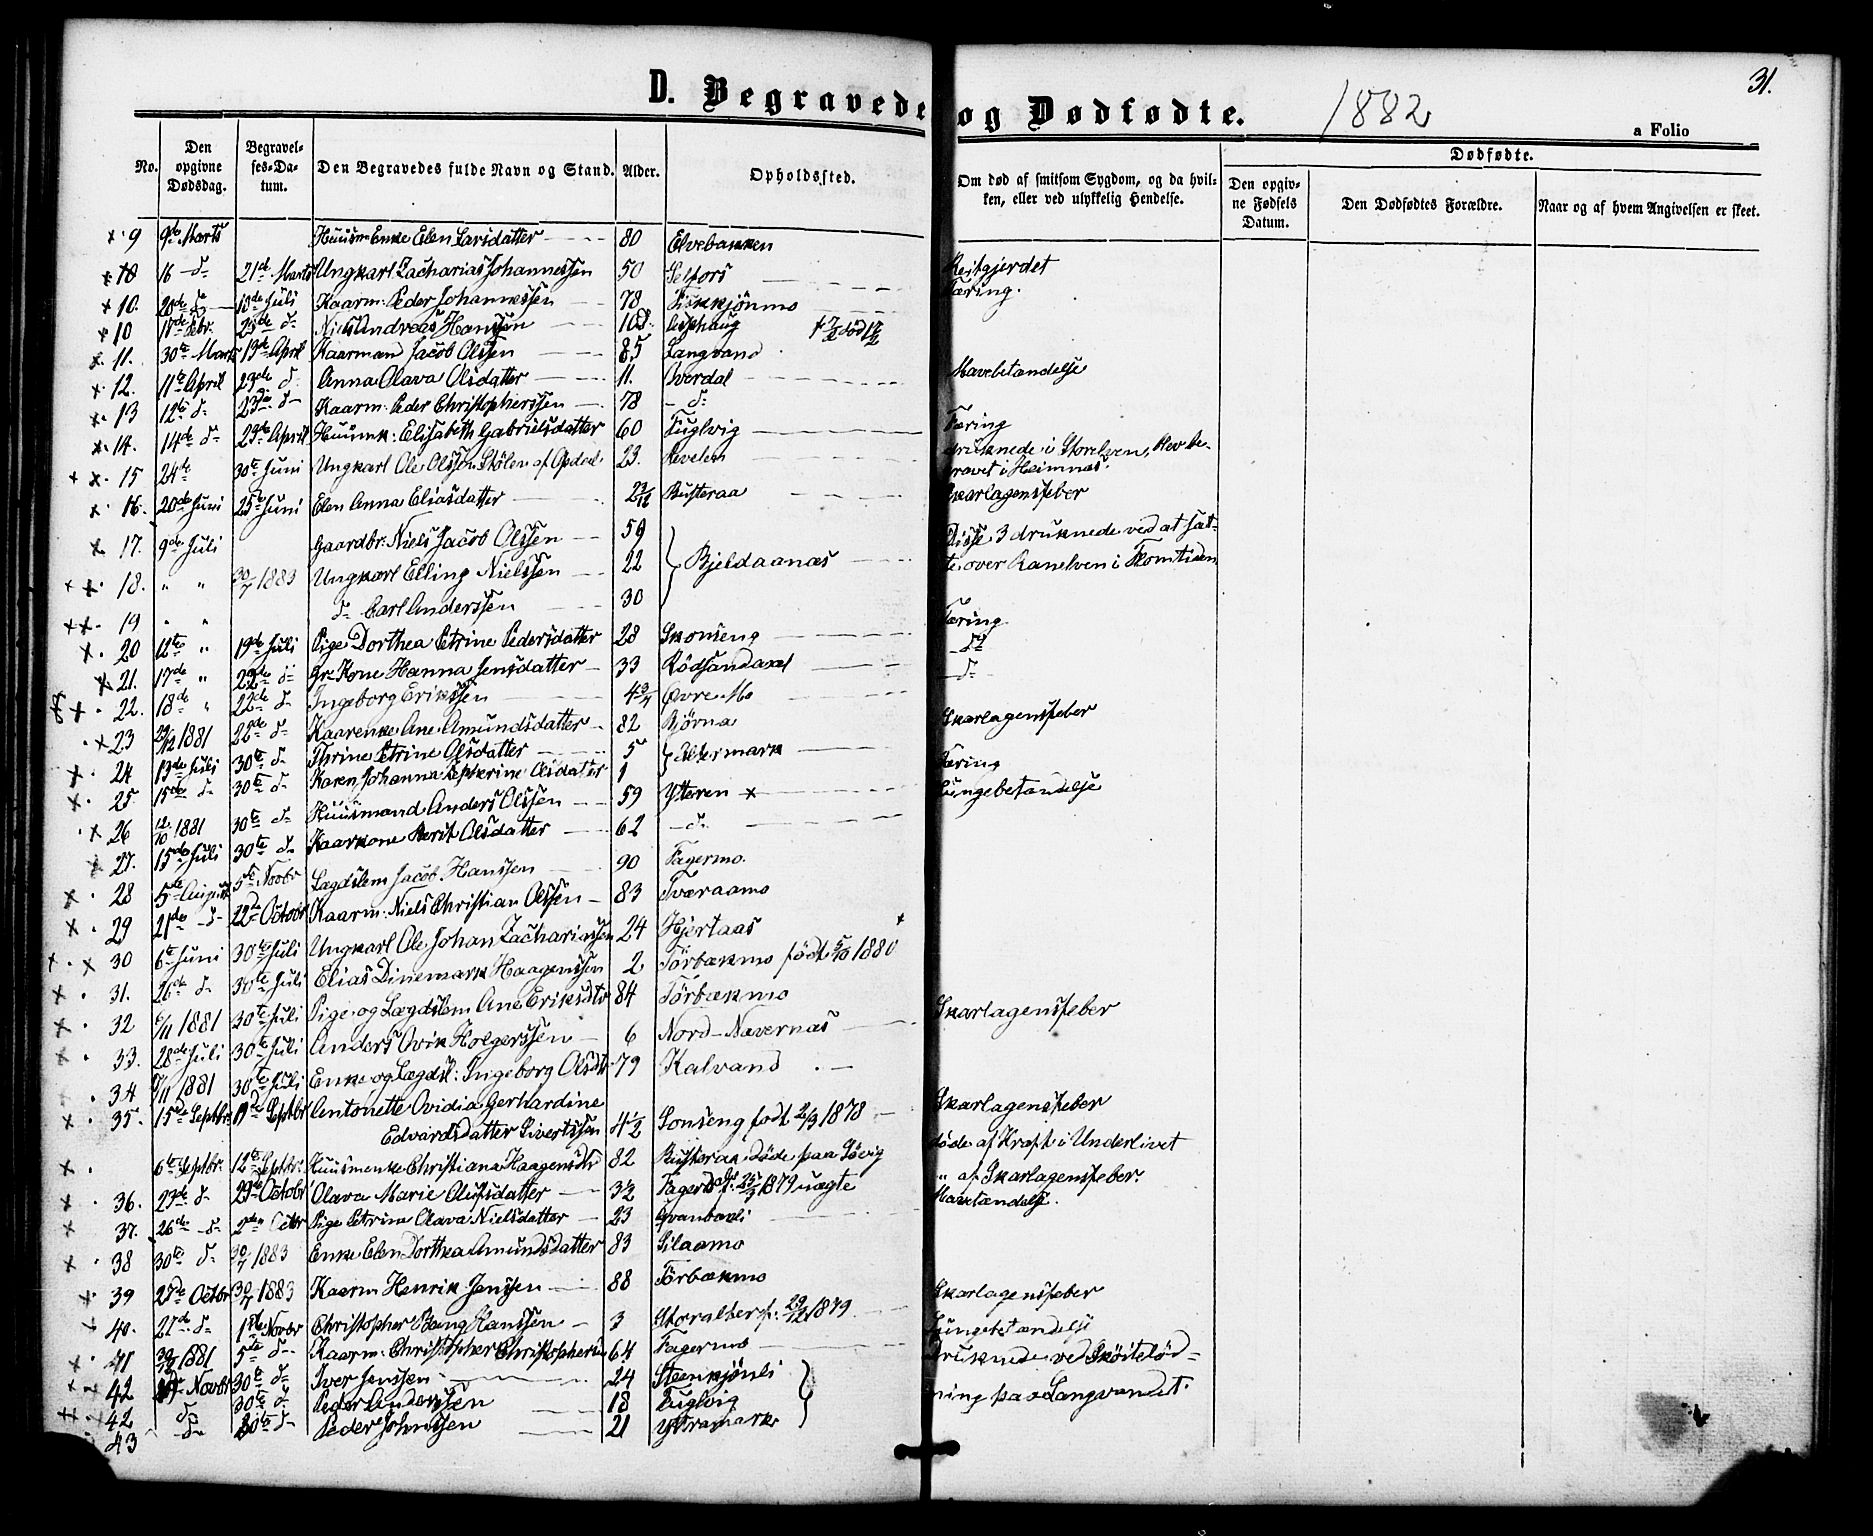 31.
D. Begravede og Dødfødte.
1882
a Folio
No.
Den opgivne Dødsdag.
Begravelses-Datum.
Den Begravedes fulde Navn og Stand.
Alder.
Opholdssted.
Om død af smitsom Sygdom, og da hvilken, eller ved ulykkelig Hendelse.
Dødfødte.
Den opgivne Fødsels Datum.
Den Dødfødtes Forældre.
Naar og af hvem Angivelsen er skeet.
9 9de Marts Huusm Enke Elen Larsdatter 80 Elvebakken
10 16 d 21de Marts Ungkarl Zacharias Johannessen 50 Selfors Reitgjerdet
10. 28de d 10de Juli Kaarm: Peder Johannessen 78 Tæring.
10 Febr. 25de d Niels Andreas Hanssen
11. 30te Marts 13de April Kaarmand Jacob Olssen 85 Langvand
12. 11te April 23de d Anna Olava Olsdatter 11. Overdal Mavebetændelse
13 12te d 23de d Kaarm: Peder Christopherssen 78 d
14. 14de d 23de April Huusmk: Elisabeth Gabrielsdatter 60 Fuglvig Tæring
15 24de 30te Juni Ungkarl Ole Olssen Stölen af Opdal 23. Revelen druknede i Storelven, blev begravet i Heimnæs.
16. 20de Juni 25te Juni Elen Anna Eliasdatter Rusteraa Skarlagensfeber
17. 9de Juli Gaardbr: Niels Jacob Olssen 59
18. " " 30/7 1883 Ungkarl Elling Nielssen 22 Bjeldaanæs Disse 3 druknede ved at sætte over Ranelven i Flomtiden
19 " " d Carl Anderssen 30
20 12te " 19de Juli Pige Dorthea Petrine Pedersdatter 28 Skonseng Tæring.
21. 17de " 22de d Gr: Kone Hanna Jensdatter 33 Rödsandaxel d
22. 18de " 22de d Ingeborg Erikssen Øvre Mo d
23 1881 22de d Kaarenke Ane Amundsdatter 82 Björnå
24 13de Juli 30te d Thrine Petrine Olsdatter 5 Altermark Skarlagensfeber
25 15de d 30te d Karen Johanna Olsdatter 1
26 12/10 1881 30te d Huusmand Anders Olssen 59 Ytteren Tæring
27. 15de Juli 30te d Kaarkone Berit Olsdatter 62 d Lungebetændelse
28 5te August 5te Novbr Lægdslem Jacob Hanssen 90 Fagermo.
29 21de d 22de Octobr Kaarm: Niels Christian Olssen 83 Tværaamo
30 6te Juni 30te Juli Ungkarl Ole Johan Zachariassen 24 Hjertaas
31. 26de d 30te Juli Elias Dinemark Haagenssen 2 Törbækmo født 5/10 1880
32 6/11 1881 30te Juli Pige og Lægdslem Ane Eriksdtr 84 Törbækmo
33. 28de Juli 30te Juli Anders Ovik Holgerssen 6 Nord-Nævernæs Skarlagensfeber
34 1881 30te Juli Enke og Lægdsl: Ingeborg Olsdtr 79 Kalvand
35. 15de Septbr. Septbr Antonette Ovidia Gerhardine
Edvardsdatter Sivertssen 4½ Sonseng født 2/9 1878 Skarlagensfeber
6te Septbr. 12te Septbr. Huusmenke Christiana Haagensdtr 82 Rusteraa døde paa Løvig døde af Kræft i Underlivet
36. 23de d 29de Octobr Olava Marie Olufsdatter 3½ 1879 uægte " af Skarlagensfeber.
37. 26de d 2den Octbr Pige Petrine Olava Nielsdatter 23 Mavetændelse.
38 30te d 1883 Enke Elen Dorthea Amundsdatter 83 Silaamo
39 27de Octbr 1883 Kaarm Henrik Jenssen 88 Törbækmo
40. 27de d 1ste Novbr Christopher Bang Hanssen 3 Storalter f: 29/12 1879. Skarlagensfeber
41 1881 5te d Kaarm: Christopher Christophersen 64 Fagermo Lungebetændelse
42 Novbr 30te d Iver Jenssen 24 Steenkjönli Druknede ved Skøiteløb-
42 d 30te d Peder Anderssen 18 Fuglvig ning paa Langvandet.
43 d 30te d Peder Johnssen 21 Ytramark